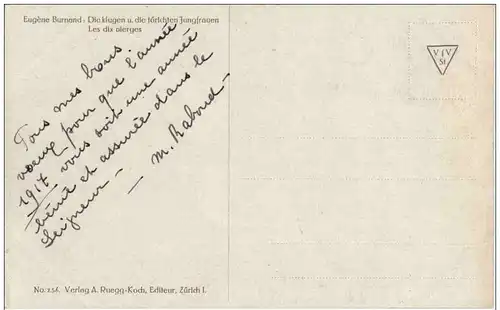 Eugène Burnand: Die klugen u. die törichten Jungfrauen
Les dix vierges
Tous mes bons
voeux pour que l'année
1917 vous soit une année
bénie et assurée dans le
Seigneur —
M. Raboud —
V f V
St
No. 256. Verlag A. Ruegg-Koch, Editeur, Zürich I.